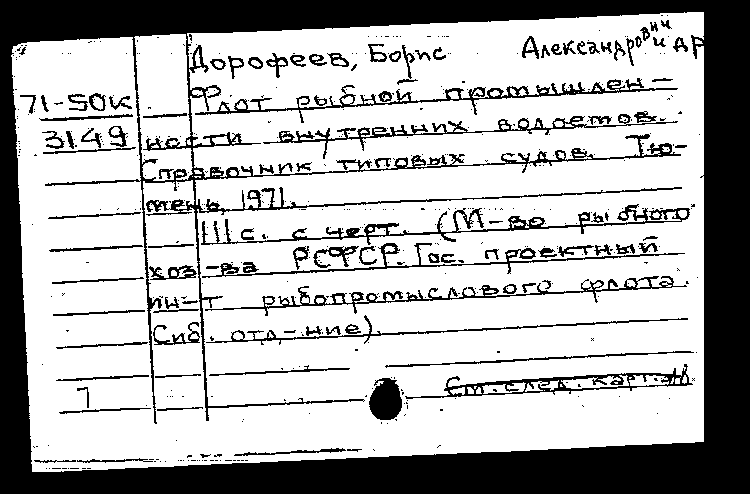 Дорофеев, Борис Александрович и др
71-50к Флот рыбной промышлен-
3149 ности внутренних водоемов.
Справочник типовых судов. Тю-
мень, 1971.
111 с. с черт. (М-во рыбного
хоз-ва РСФСР. Гос. проектный
ин-т рыбопромыслового флота.
Сиб. отд-ние).
7 См. след. карт.